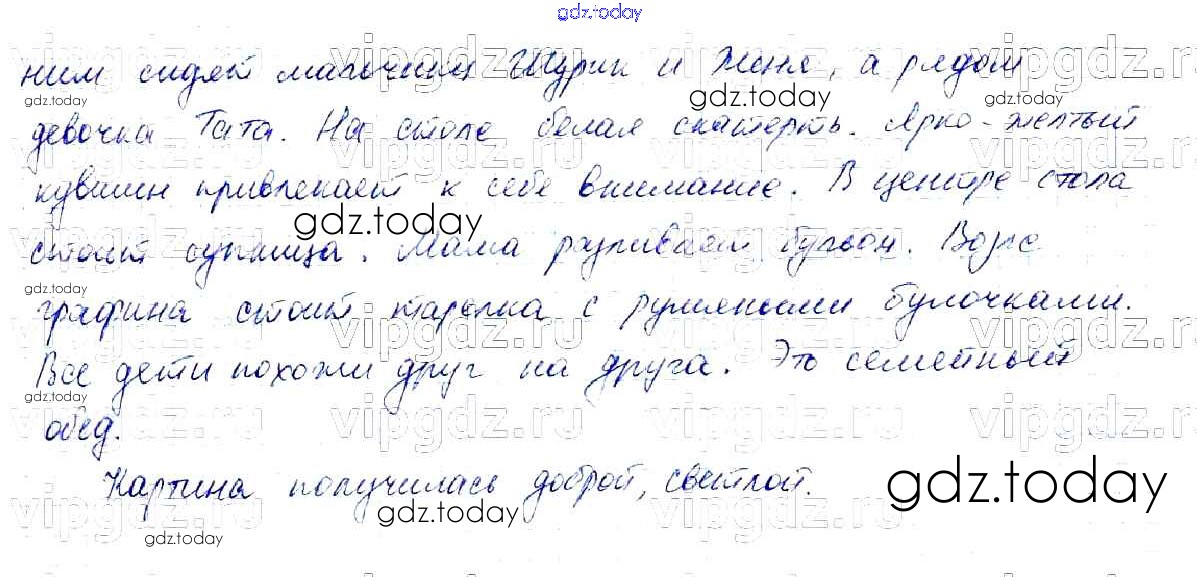 gdz.today
ним сидят мальчики Шурик и Женя, а рядом
gdz.today gdz.today
девочка Тата. На столе белая скатерть. Ярко-желтый
кувшин привлекает к себе внимание. В центре стола
gdz.today
стоит супница. Мама разливает бульон. Возле
gdz.today
графина стоит тарелка с румяными булочками.
Все дети похожи друг на друга. Это семейный
gdz.today
обед.
Картина получилась доброй, светлой.
gdz.today
gdz.today
gdz.today
vipgdz.ru